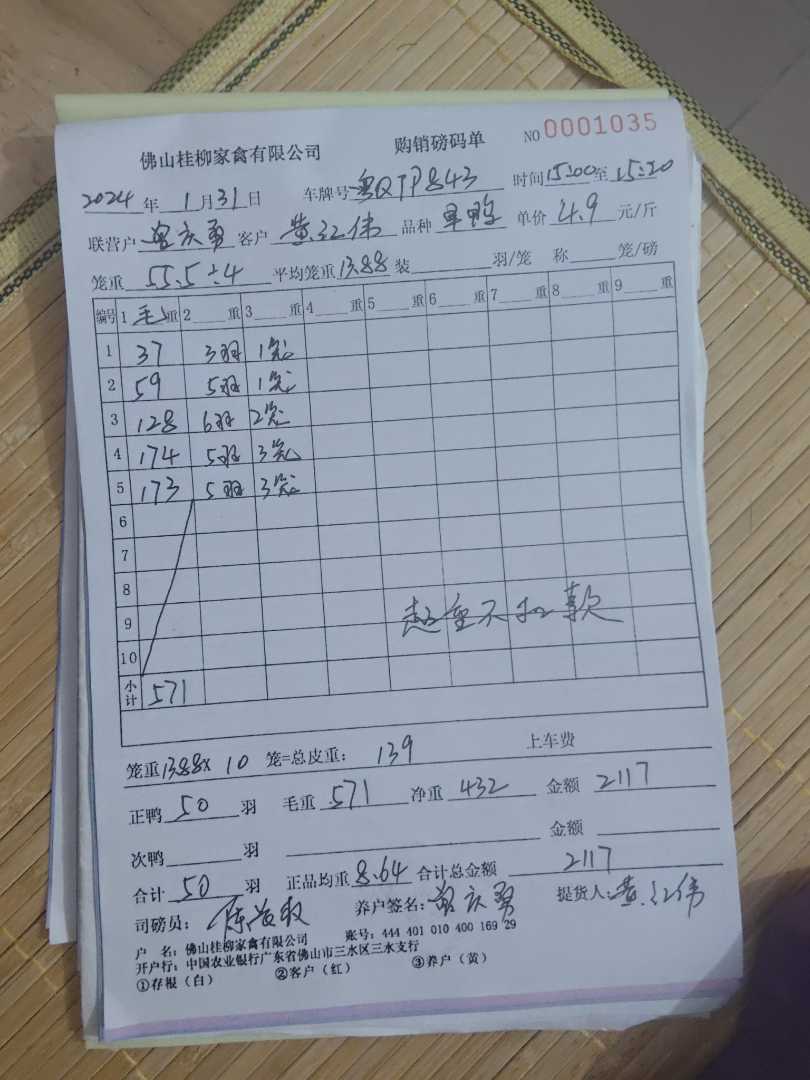 佛山桂柳家禽有限公司 购销磅码单 NO 0001035
2024年 1月31日 车牌号粤QTP843 时间15:00至15:20
联营户曾庆勇 客户 黄红伟 品种 旱鸭 单价 4.9 元/斤
笼重 55.5÷4 平均笼重13.88 装 羽/笼 称 笼/磅
编号 1 毛重 2 重 3 重 4 重 5 重 6 重 7 重 8 重 9 重
1 37 3羽 1笼
2 59 5羽 1笼
3 128 6羽 2笼
4 174 5羽 3笼
5 173 5羽 3笼
6
7
8
9
超重不扣款
10
小计 571
笼重13.88× 10 笼=总皮重: 139 上车费
正鸭 50 羽 毛重 571 净重 432 金额 2117
次鸭 羽 金额
合计 50 羽 正品均重 8.64 合计总金额 2117
司磅员: 养户签名: 曾庆勇 提货人: 黄红伟
户 名: 佛山桂柳家禽有限公司 账号: 444 401 010 400 169 29
开户行: 中国农业银行广东省佛山市三水区三水支行
①存根(白) ②客户(红) ③养户(黄)